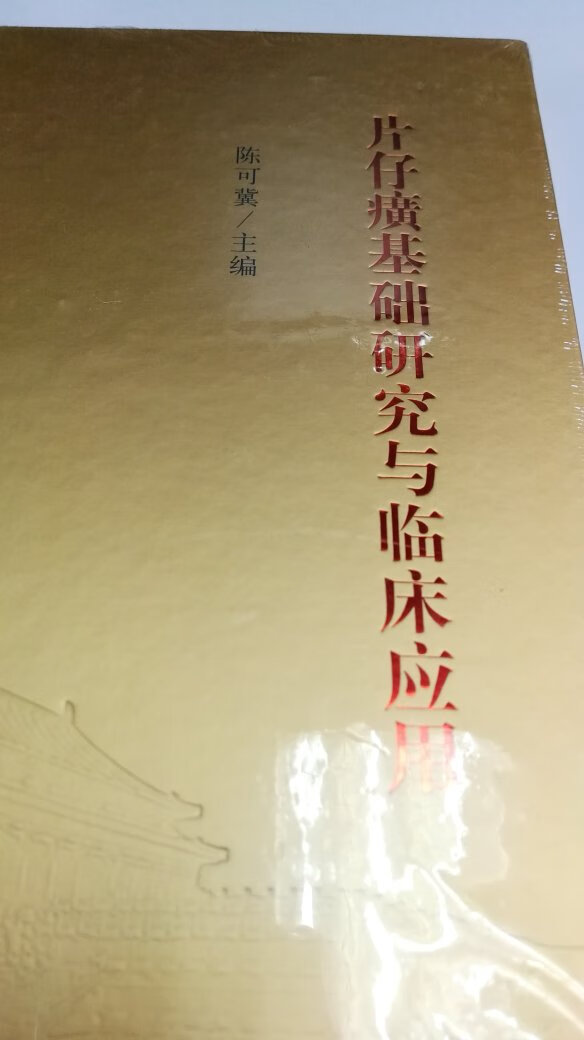 片仔癀基础研究与临床应用
陈可冀/主编